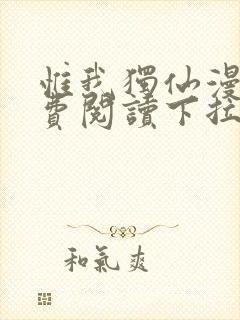 惟我獨仙漫
費閱讀下拉
和氣爽